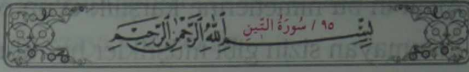 ٩٥ / سُورَةُ التِّينِ
بِسْمِ اللّٰهِ الرَّحْمٰنِ الرَّحِيمِ